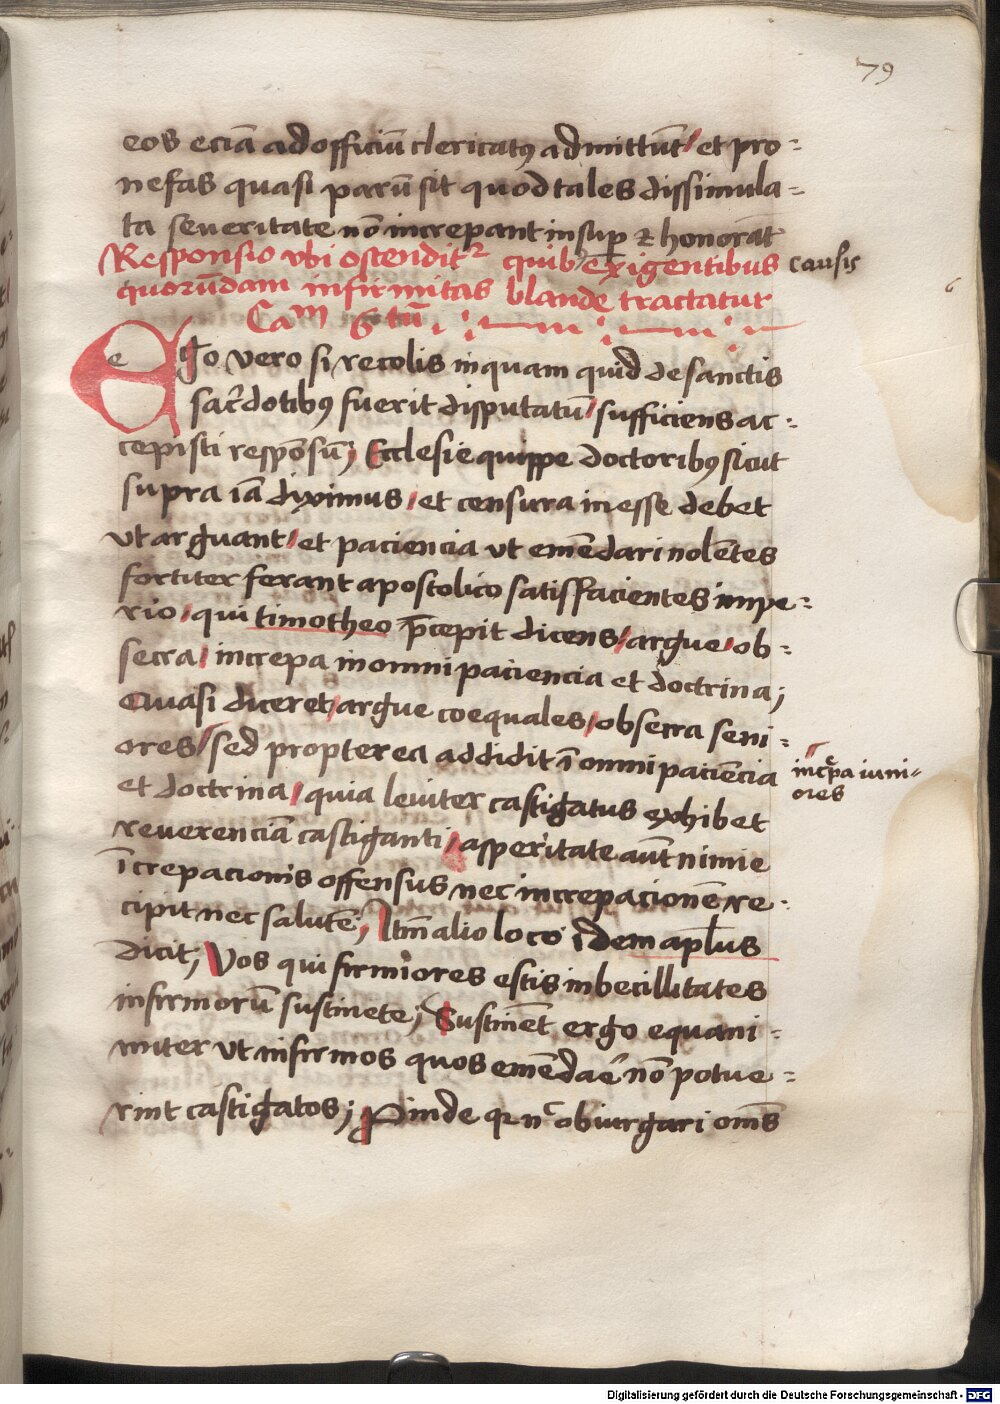 79
eos eciā ad officiū clericatꝰ admittūt / et pro-
nefas quasi parū sit quod tales dissimula-
ta severitate nō increpant insuꝑ ⁊ honorāt
Responsio vbi ostenditᷣ quibꝰ exigentibus causis
quorūdam infirmitas blande tractatur
Caᵐ 6 tū
Ego vero si recolis inquam quid de sanctis
sac̄dotibꝰ fuerit disputatū / sufficiens ac-
cepisti respōsū; Ecclesie quippe doctoribꝯ sicut
supra iā diximus / et censura inesse debet
vt arguant / et paciencia vt emēdari nolētes
fortiter ferant apostolico satisfacientes impe-
rio / qui timotheo p̄cepit dicens / argue / ob-
secra / increpa in omni paciencia et doctrina;
Quasi diceret / argue coequales / obsecra seni-
ores / sed propterea addidit ī omni paciēcia
incͥpa iuni-
ores
et doctrina / quia leuiter castigatus exhibet
reuerenciā castiganti / asperitate aūt nimie
īcrepacionis offensus nec increpacionē re-
cipit nec salutē; Itm̄ alio loco idem apl̄us
dicit; Vos qui firmiores estis imbecillitates
infirmorū sustinete; Sustinēt ergo equani-
miter vt infirmos quos emēdar̄e nō potue-
rint castigatos; Proinde qꝛ nͨ obiurgari om̄s